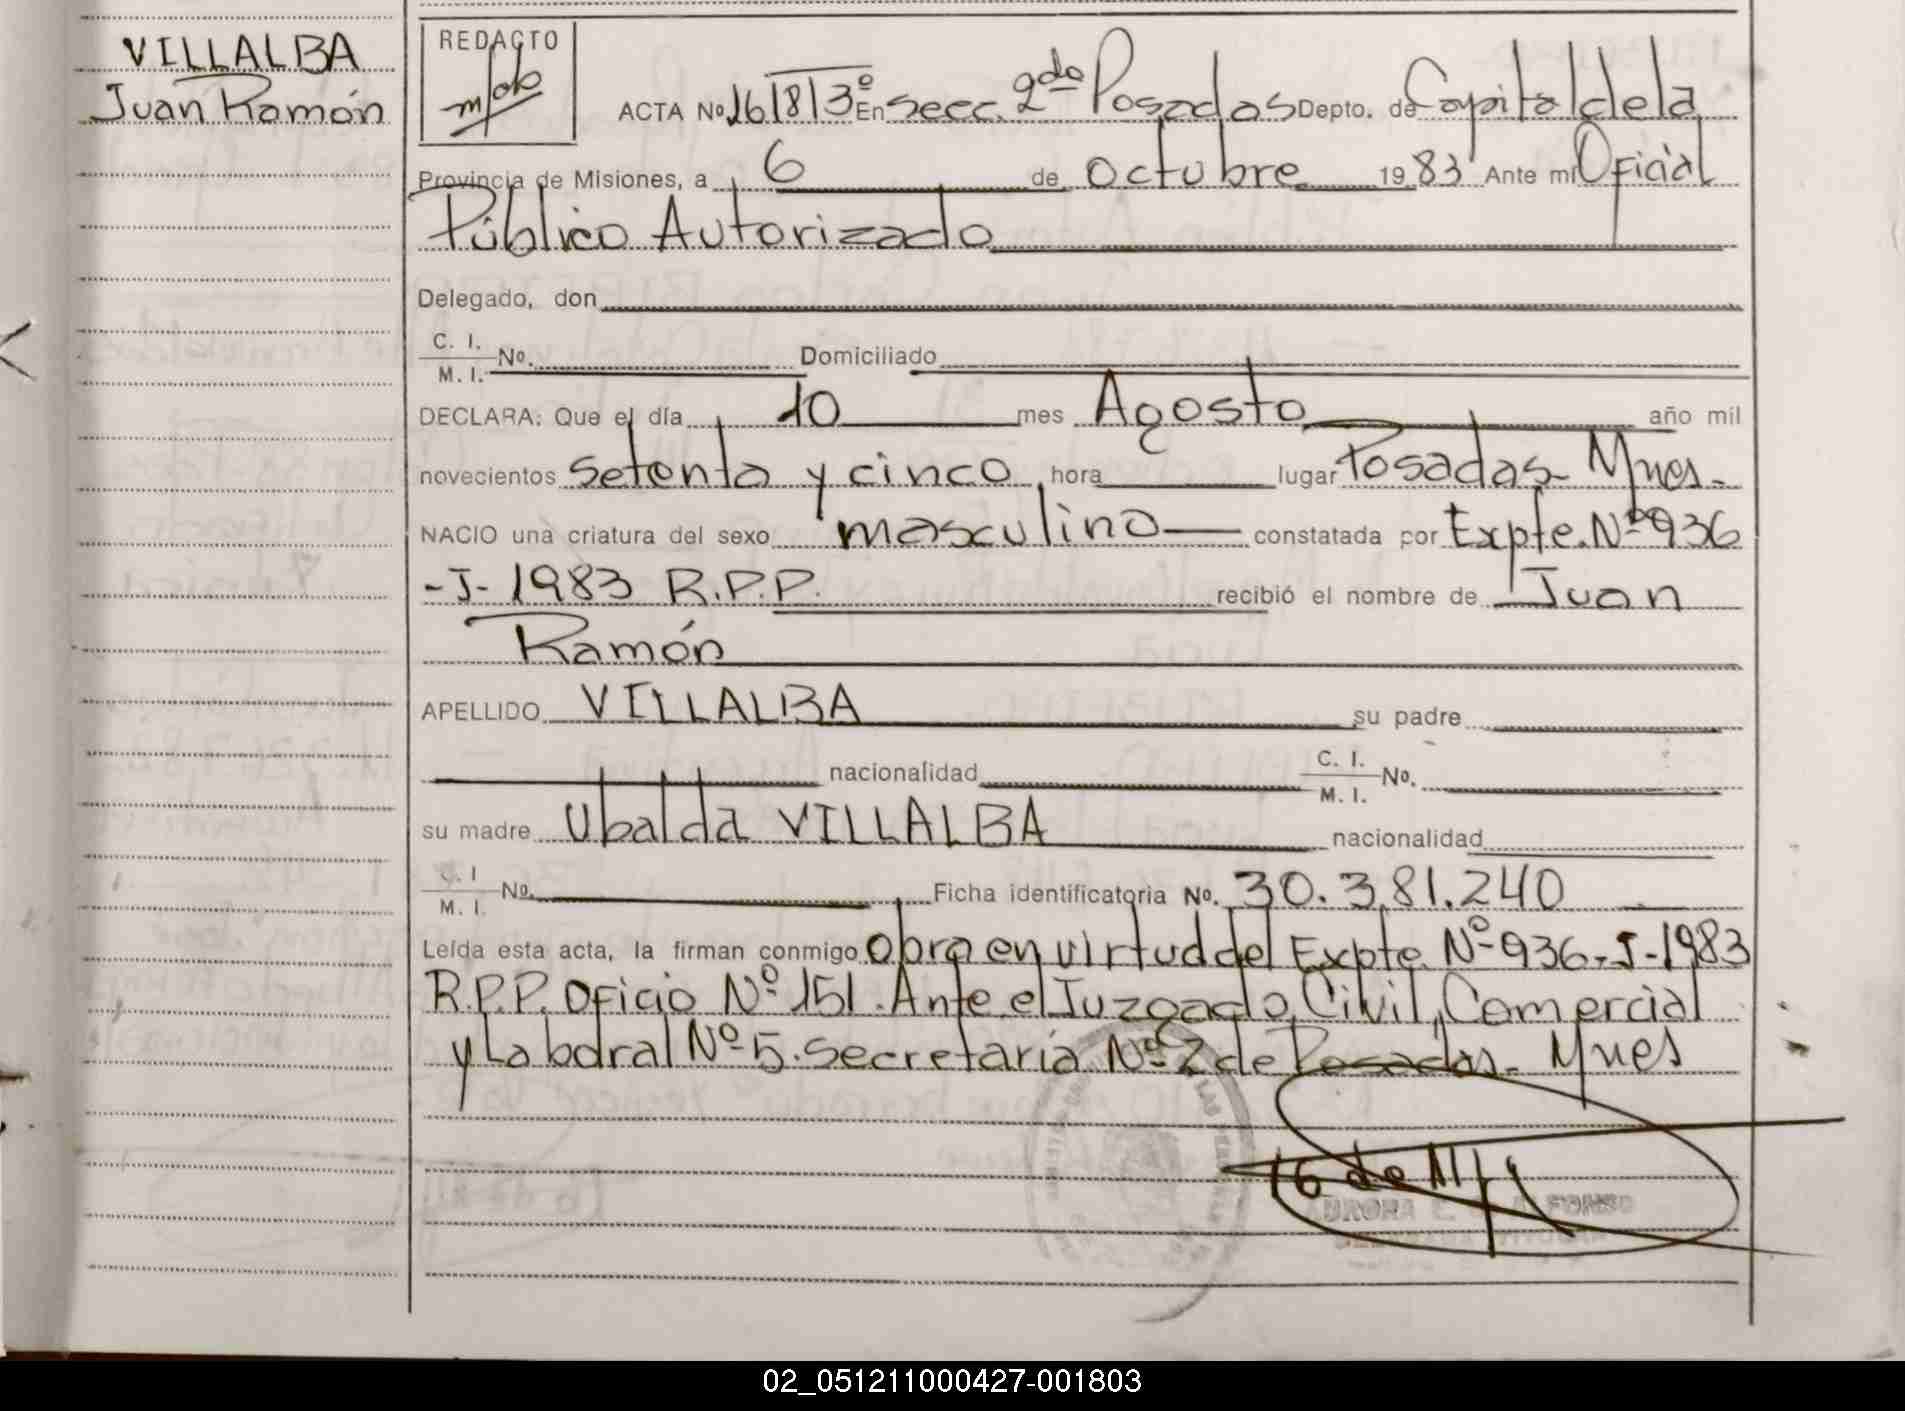 VILLALBA
Juan Ramón
REDACTO
ACTA No 1618/3º En secc. 2da Posadas Depto. de Capital de la
Provincia de Misiones, a 6 de octubre 1983 Ante mi Oficial
Público Autorizado
Delegado, don
C. I.
M. I. No. Domiciliado
DECLARA: Que el día 10 mes Agosto año mil
novecientos setenta y cinco hora lugar Posadas- Mnes.
NACIO una criatura del sexo masculino constatada por Expte. Nº 936
-J- 1983 R.P.P. recibió el nombre de Juan
Ramón
APELLIDO VILLALBA su padre
nacionalidad C. I. M. I. No.
su madre Ubalda VILLALBA nacionalidad
C. I M. I. No. Ficha identificatoria No. 30.381.240
Leída esta acta, la firman conmigo obra en virtud del Expte. Nº 936-J-1983
R.P.P. Oficio Nº 151. Ante el Juzgado Civil, Comercial
y Laboral Nº 5. Secretaría Nº 2 de Posadas- Mnes
02_051211000427-001803